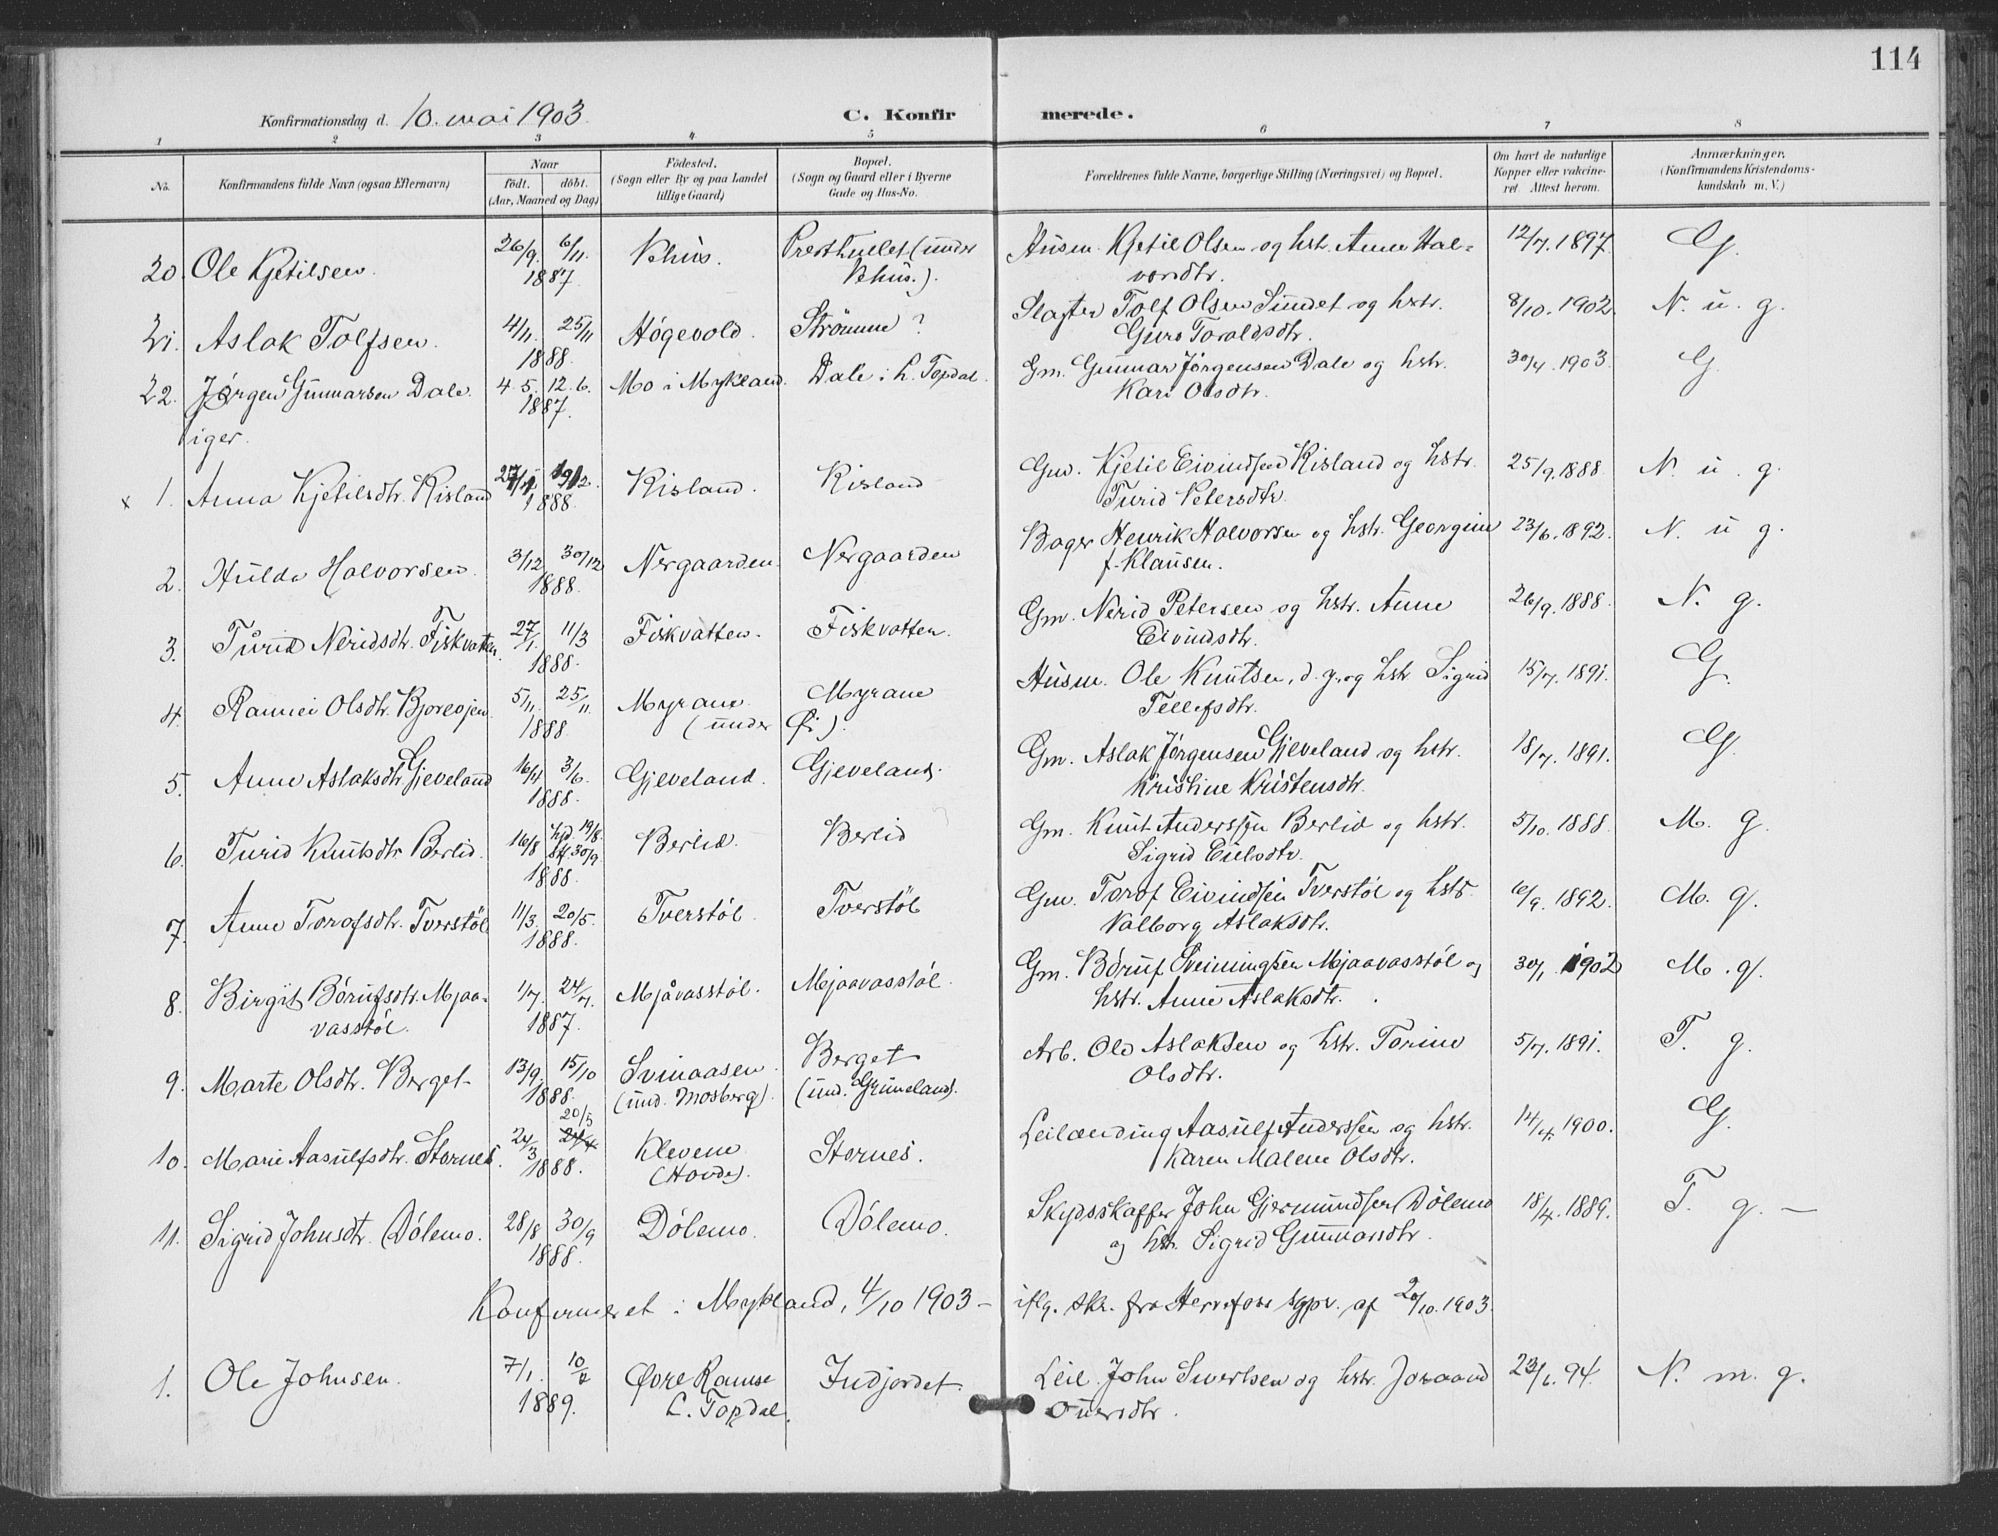 114
Konfirmationsdag d. 10. mai 1903 C. Konfirmerede.
1 2 3 4 5 6 7 8
No. Konfirmandens fulde Navn (ogsaa Efternavn) Naar født. døbt. (Aar, Maaned og Dag) Fødested. (Sogn eller By og paa Landet tillige Gaard) Bopæl. (Sogn og Gaard eller i Byerne Gade og Hus-No. Forældrenes fulde Navne, borgerlige Stilling (Næringsvei) og Bopæl. Om havt de naturlige Kopper eller vakcineret Attest herom. Anmærkninger. (Konfirmandens Kristendomskundskab m. V.)
20. Ole Kjetilsen. 26/9. 6/11. 1887. Vehus. Presthullet (under Vehus.). Husm. Kjetil Olsen og hst. Anne Halvorsdtr. 12/7. 1897. G.
21. Aslak Tolfsen. 4/11. 25/11 1888. Høgevold. Strømme ? Slagter Tolf Olsen Sundet og hstr. Guro Toraldsdtr. 8/10. 1902. N. u. g.
22. Jørgen Gunnarsen Dale. 4. 5. 12. 6. 1887. Mo i Mykland. Dale i L. Topdal. Gm. Gunnar Jørgensen Dale og hstr. Kari Olsdtr. 30/4. 1903. G.
iger.
x 1. Anna Kjetilsdtr. Risland 1888. Risland. Risland Gm. Kjetil Eivindsen Risland og hstr. Turid Petersdtr. 25/9. 1888. N. u. g.
2. Hulda Halvorsen. 3/12 30/12 1888. Nergaarden. Nergaarden Bager Henrik Halvorsen og hstr. Georgine f. Klausen. 23/6. 1892. N. u g.
3. Turid Neridsdtr. Fiskvatten. 27/1. 11/3 1888. Fiskvatten. Fiskvatten. Gm. Nerid Petersen og hstr. Anne Eivindsdtr. 26/9. 1888. N. g.
4. Rannei Olsdtr. Bjoresjen. 5/11. 25/11. 1888 Myrane (under Øi). Myrane Husm. Ole Knutsen, d. y. og hstr Sigrid Tellefsdtr. 15/7. 1891. G.
5. Anne Aslaksdtr. Gjeveland 16/4 3/6. 1888. Gjeveland. Gjeveland. Gm. Aslak Jørgensen Gjeveland og hstr. Kristine Kristensdtr. 18/7. 1891. G.
6. Turid Knutsdtr Berlid. 16/8 hjd. 19/8. stf. 30/9. 1888. Berlid. Berlid Gm. Knut Anderssen Berlid og hstr. Sigrid Eielvdtr. 5/10. 1888. M. g.
7. Anne Torofsdtr. Tverstøl 11/3. 20/5. 1888. Tverstøl Tverstøl Gm. Torof Eivindsen Tverstøl og hstr. Valborg Aslaksdtr. 1892. M. g.
8. Birgit Børufsdtr. Mjaavasstøl. 1/7. 24/7. 1887. Mjåvasstøl. Mjaavasstøl. Gm. Børuf Sveiningsen Mjaavasstøl og hstr. Anne Aslaksdtr. 30/1. 1902 M. g.
9. Marte Olsdtr. Berget 13/9. 15/10 1888. Svinaasen (und. Mosberg). Berget (und. Gruneland). Arb. Ole Aslaksen og hstr. Torine Olsdtr. 5/7. 1891. T. g.
10. Marie Aasulfsdtr. Stornes. 24/3 20/5 24/4 1888. Klevene (Hovde). Stornes. Leilænding Aasulf Anderssen og hstr. Karen Malene Olsdtr. 14/4. 1900. G.
11. Sigrid Johnsdtr. Dølemo. 28/8 30/9 1888. Dølemo. Dølemo. Skydsskaffer John Gjermundsen Dølemo og hstr. Sigrid Gunnarsdtr. 18/4. 1889. T. g. –
Konfirmeret i Mykland, 4/10 1903 – iflg. skr. fra Herefoss sgpr. af 20/10. 1903.
1. Ole Johnsen. 7/1. 10/2 1889. Øvre Ramse L. Topdal. Indjordet. Leil. John Sivertsen og hstr. Joraand Ouversdtr. 23/6. 94. N. m. g.